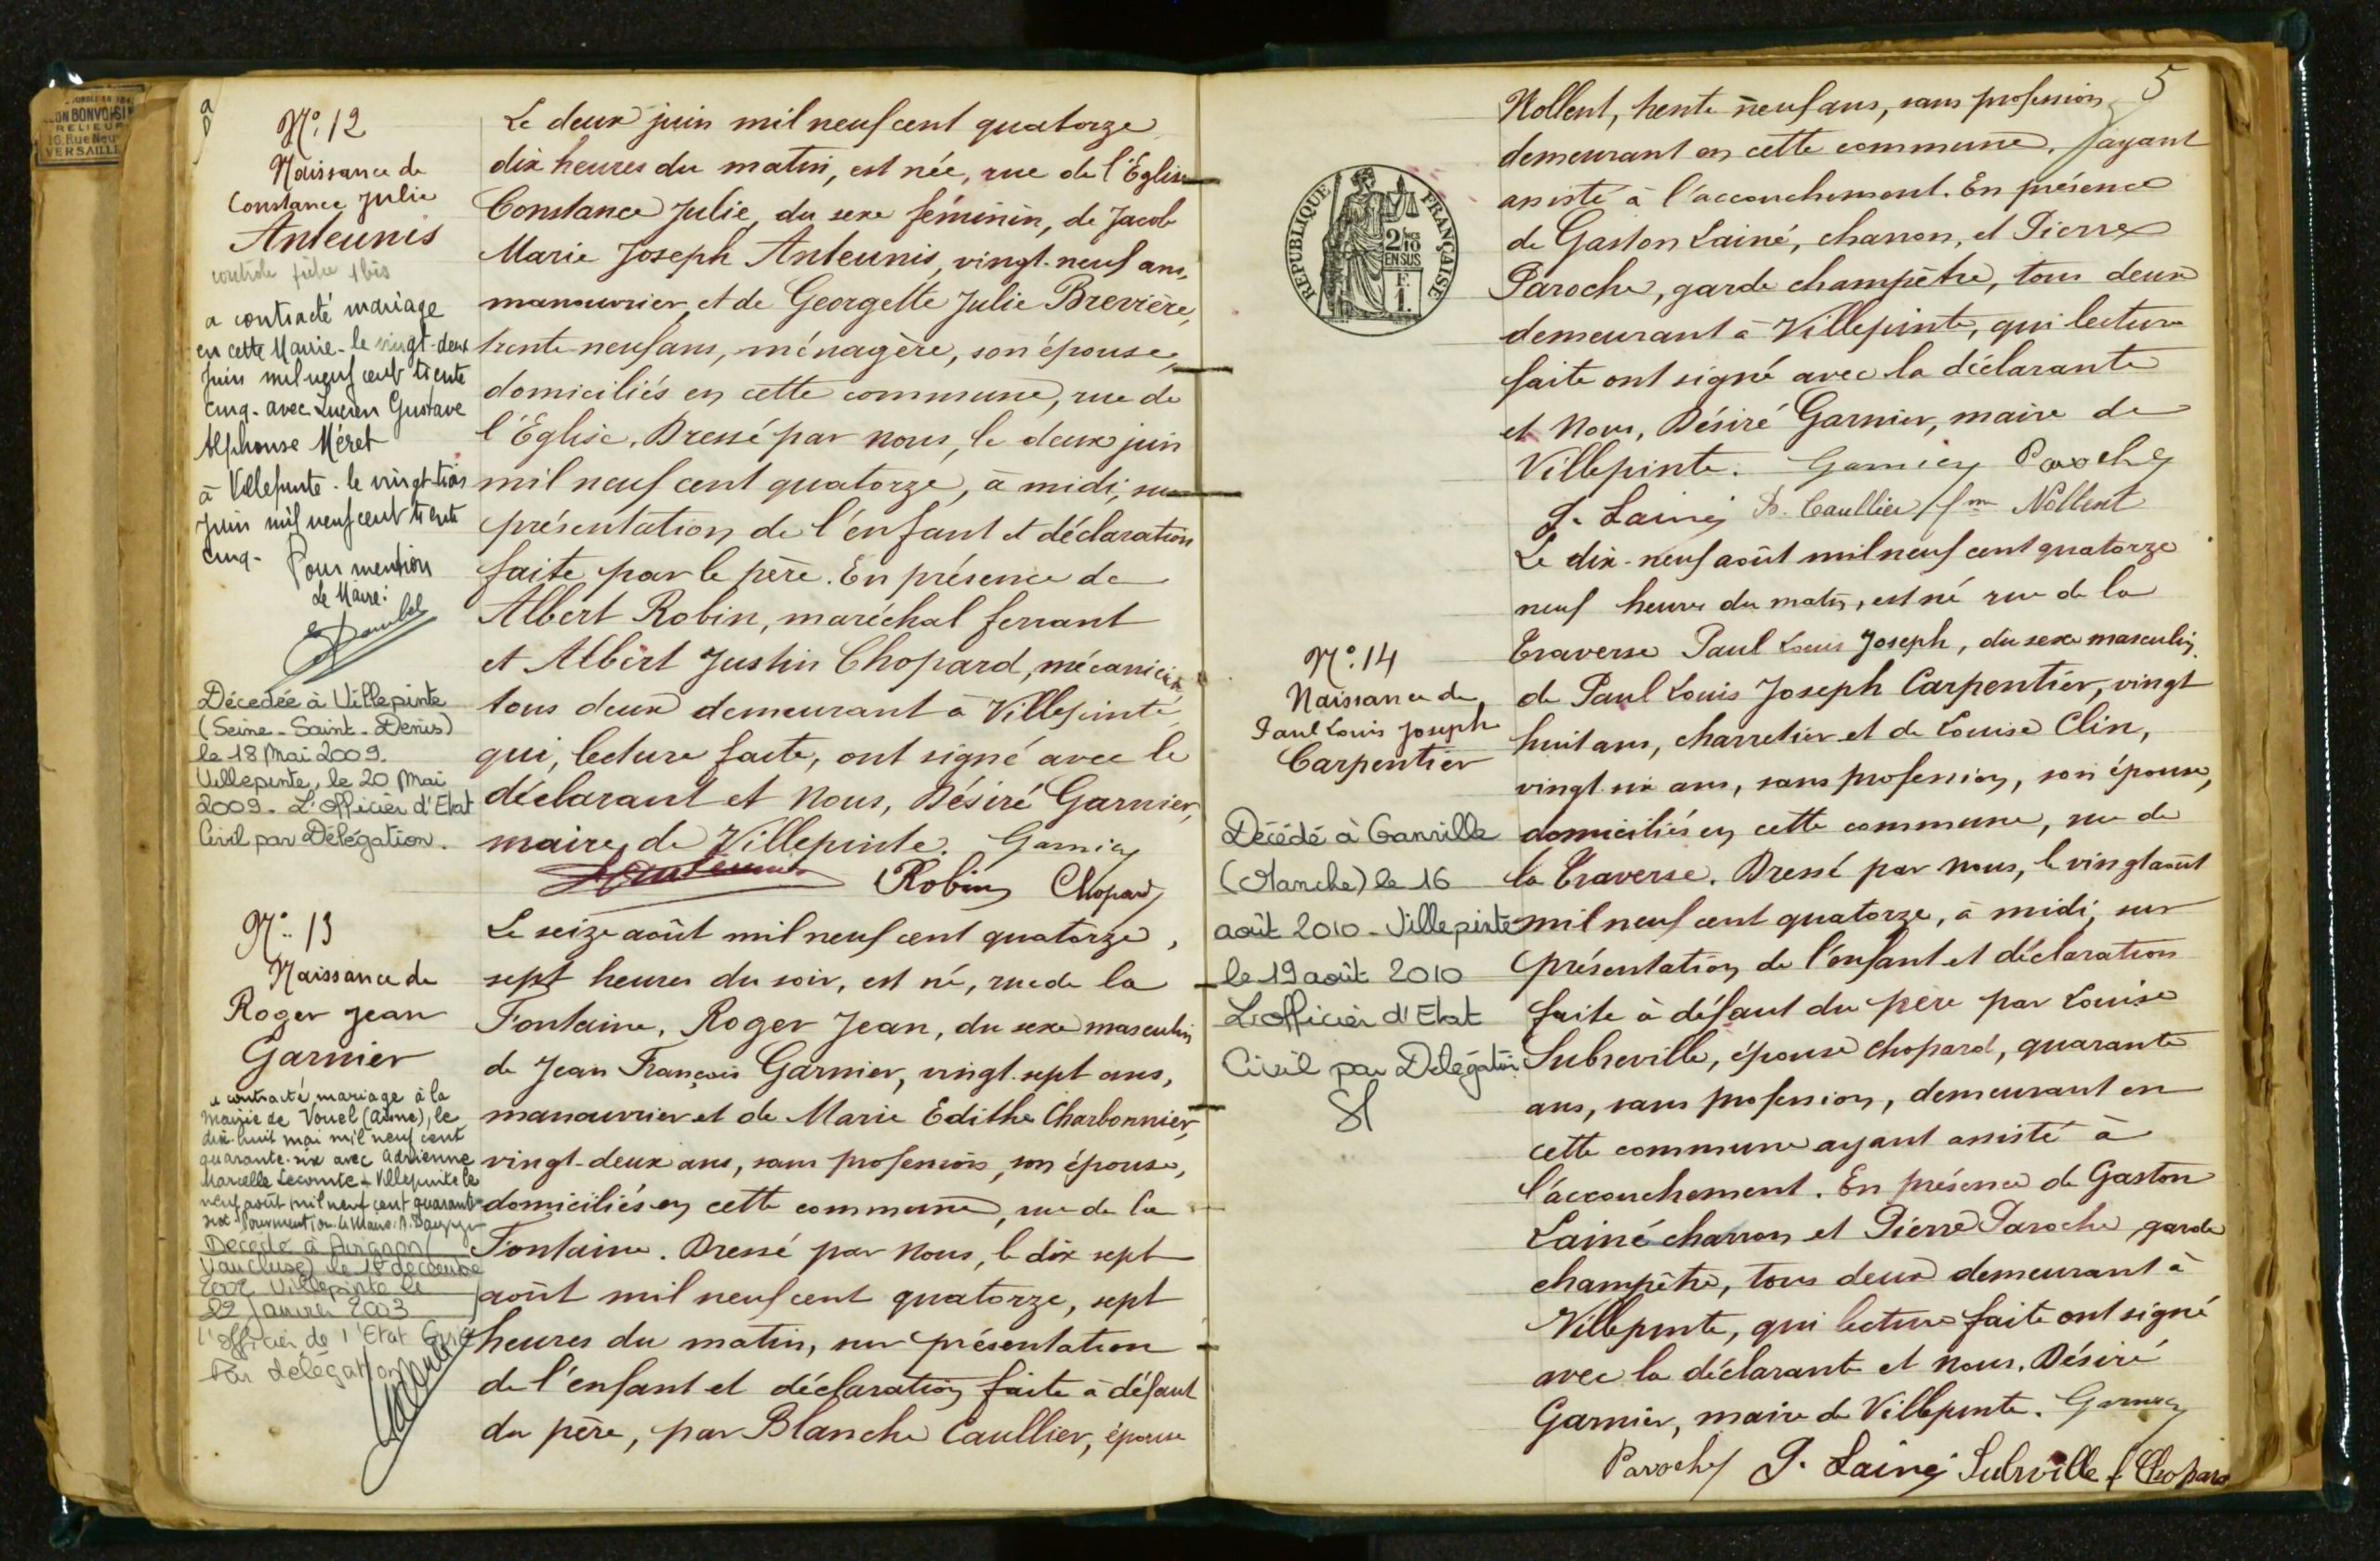 ON BONVOISIN
RELIEUR
16, Rue Neuve
VERSAILLES
N° 12
Naissance de
Constance Julie
Anteunis
contrôle fiche 1 bis
a contracté mariage
en cette Mairie le vingt-deux
Juin mil neuf cent trente
cinq - avec Lucien Gustave
Alphonse Méret
à Villepinte - le vingt-trois
Juin mil neuf cent trente
cinq - Pour mention
Le Maire:
Décédée à Villepinte
(Seine-Saint-Denis)
le 18 Mai 2009.
Villepinte, le 20 Mai
2009 - L'Officier d'Etat
Civil par Délégation.
Le deux juin mil neuf cent quatorze
dix heures du matin, est née, rue de l'Eglise
Constance Julie, du sexe féminin, de Jacob
Marie Joseph Anteunis, vingt-neuf ans,
manouvrier, et de Georgette Julie Brevière,
trente-neuf ans, ménagère, son épouse,
domiciliés en cette commune, rue de
l'Eglise. Dressé par nous, le deux juin
mil neuf cent quatorze, à midi, sur
présentation de l'enfant et déclaration
faite par le père. En présence de
Albert Robin, maréchal ferrant
et Albert Justin Chopard, mécanicien,
tous deux demeurant à Villepinte,
qui, lecture faite, ont signé avec le
déclarant et Nous, Désiré Garnier,
maire de Villepinte. Garnier
Anteunis Robin Chopard
N° 13
Naissance de
Roger Jean
Garnier
a contracté mariage à la
Mairie de Vouel (Aisne), le
dix-huit mai mil neuf cent
quarante-six avec Adrienne
Marcelle Lecomte - Villepinte le
neuf août mil neuf cent quarante
six - Pour mention le Maire.
Décédé à Avignon
(Vaucluse) le 18 décembre
2002 Villepinte le
22 Janvier 2003
l'officier de l'Etat Civil
Par délégation
Le seize août mil neuf cent quatorze,
sept heures du soir, est né, rue de la
Fontaine, Roger Jean, du sexe masculin
de Jean François Garnier, vingt-sept ans,
manouvrier et de Marie Edithe Charbonnier,
vingt-deux ans, sans profession, son épouse,
domiciliés en cette commune, rue de la
Fontaine. Dressé par Nous, le dix sept
août mil neuf cent quatorze, sept
heures du matin, sur présentation
de l'enfant et déclaration faite à défaut
du père, par Blanche Caullier, épouse
5
REPUBLIQUE FRANÇAISE
2/10
EN SUS
F
1.
Nollent, trente neuf ans, sans profession
demeurant en cette commune, ayant
assisté à l'accouchement. En présence
de Gaston Lainé, charron, et Pierre
Paroche, garde champêtre, tous deux
demeurant à Villepinte, qui lecture
faite ont signé avec la déclarante
et Nous, Désiré Garnier, maire de
Villepinte. Garnier Paroche
G. Lainé B. Caullier fme Nollent
N° 14
Naissance de
Paul Louis Joseph
Carpentier
Décédé à Granville
(Manche) le 16
août 2010 - Villepinte
le 19 août 2010
L'officier d'Etat
Civil par Délégation
Le dix-neuf août mil neuf cent quatorze
neuf heures du matin, est né rue de la
Traverse Paul Louis Joseph, du sexe masculin,
de Paul Louis Joseph Carpentier, vingt
huit ans, charretier et de Louise Clin,
vingt-six ans, sans profession, son épouse,
domiciliés en cette commune, rue de
la Traverse. Dressé par nous, le vingt août
mil neuf cent quatorze, à midi, sur
présentation de l'enfant et déclaration
faite à défaut du père par Louise
Subreville, épouse Chopard, quarante
ans, sans profession, demeurant en
cette commune ayant assisté à
l'accouchement. En présence de Gaston
Lainé charron et Pierre Paroche, garde
champêtre, tous deux demeurant à
Villepinte, qui lecture faite ont signé
avec la déclarante et Nous, Désiré
Garnier, maire de Villepinte. Garnier
Paroche G. Lainé Subrville f Chopard